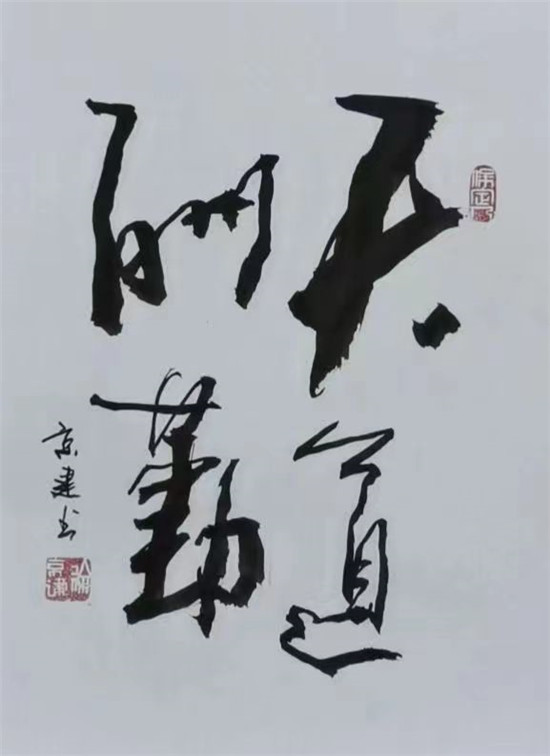 天道
酬勤
京建书